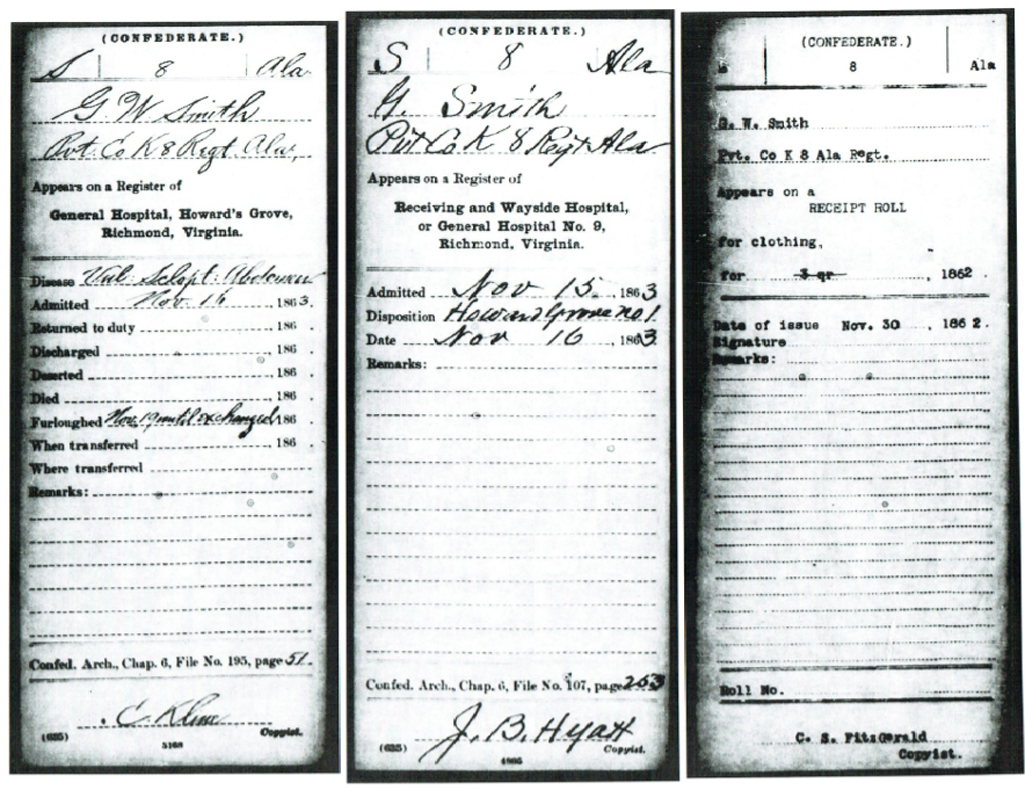 (CONFEDERATE.)
S | 8 | Ala
G W Smith
Pvt. Co K 8 Regt. Ala,
Appears on a Register of
General Hospital, Howard's Grove,
Richmond, Virginia.
Disease Vul. Sclopt. Abdomen
Admitted Nov. 16, 1863.
Returned to duty , 186 .
Discharged , 186 .
Deserted , 186 .
Died , 186 .
Furloughed Nov. 19 until exchanged, 186 .
When transferred , 186 .
Where transferred
Remarks:
Confed. Arch., Chap. 6, File No. 195, page 51.
(635)
Copyist.
(CONFEDERATE.)
S | 8 | Ala
G. Smith
Pvt Co K 8 Regt Ala
Appears on a Register of
Receiving and Wayside Hospital,
or General Hospital No. 9,
Richmond, Virginia.
Admitted Nov 15., 1863
Disposition Howard Grove no 1.
Date Nov 16, 1863
Remarks:
Confed. Arch., Chap. 6, File No. 107, page 253
J. B. Hyatt
(635) Copyist.
(CONFEDERATE.)
S | 8 | Ala
G. W. Smith
Pvt. Co K 8 Ala Regt.
Appears on a
RECEIPT ROLL
for clothing,
for 3 qr , 1862.
Date of issue Nov. 30 , 1862.
Signature
Remarks:
Roll No.
C. S. FitzGerald
Copyist.